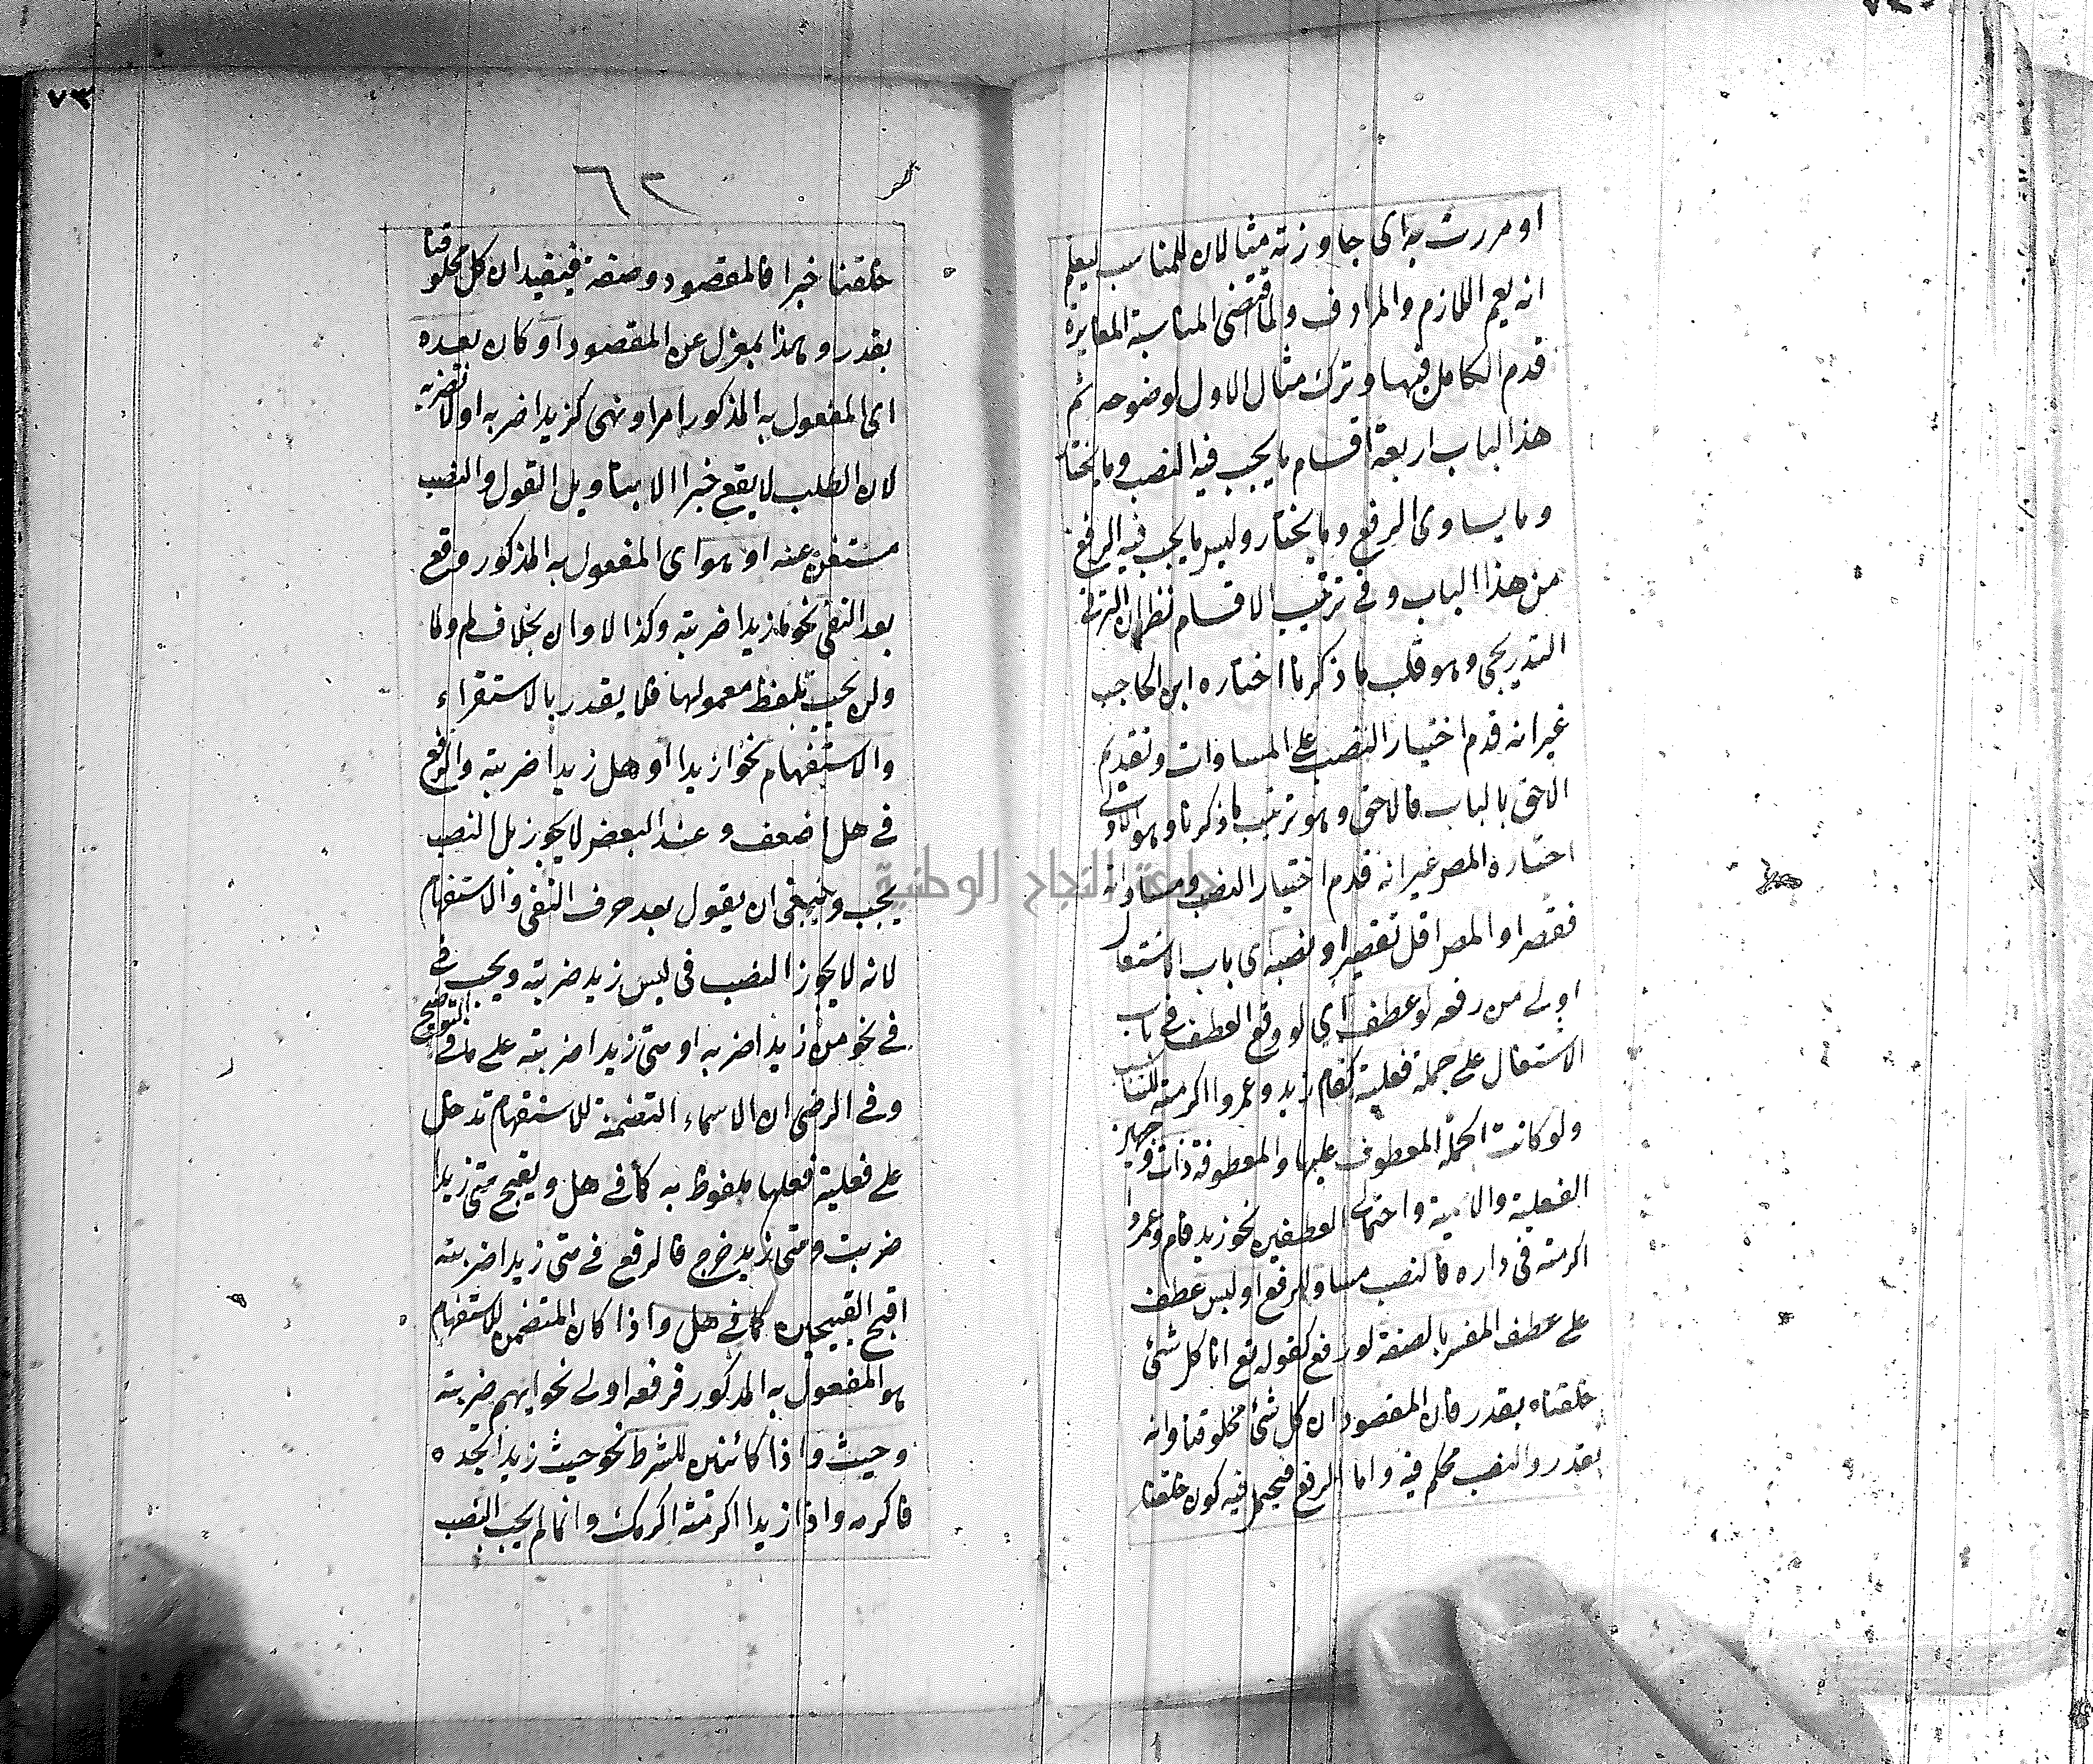 او مررت به اى جاوزته مثالان للمناسب ليعلم
انه يعم اللازم والمرادف ولما اقتضى المناسبة المغايرة
قدم الكامل فيها وترك مثال الاول لوضوحه ثم
هذا الباب اربعة اقسام ما يجب فيه النصب وما يختار
وما يساوى الرفع وما يختار وليس ما يجب فيه الرفع
من هذا الباب وفى ترتيب الاقسام نظران الترقى
التدريجى وهو قلب ما ذكرنا اختاره ابن الحاجب
غير انه قدم اختيار النصب على المساوات وتقديم
الاحق بالباب فالاحق وهو ترتيب ما ذكرنا وهو الاولى
اختاره المصر غير انه قدم اختيار النصب ومساواته
فقصر او المصر اقل تقصيرا ونصبه اى باب الاشتغال
اولى من رفعه لو عطف اى لو وقع العطف فى باب
الاشتغال على جملة فعلية كقام زيد وعمروا اكرمته للتناسب
ولو كانت الجملة المعطوف عليها والمعطوفة ذات وجهين
الفعلية والاسمية واحتمالى العطفين نحو زيد قام وعمروا
اكرمته فى داره فالنصب مساو للرفع او لبس عطف
على عطف المفسر بالصفة لو رفع كقوله تع انا كل شئ
خلقناه بقدر فان المقصود ان كل شئ مخلوقنا وانه
بقدر والنصب محكم فيه واما الرفع فيحتمل فيه كون خلقنا
٧٣
٦٢
خلقنا خبرا فالمقصود وصفة فيفيد ان كل مخلوقنا
بقدر وهذا بمعزل عن المقصود او كان بعده
اى المفعول به المذكور امر او نهى كزيدا اضربه اولا تضربه
لان الطلب لا يقع خبرا الا بتأويل القول والنصب
مستغن عنه او هو اى المفعول به المذكور وقع
بعد النفى نحو ما زيدا ضربته وكذا لا وان بخلاف لم ولما
ولن يجب تلفظ معمولها فلا يقدر بالاستقراء
والاستفهام نحو ازيدا او هل زيدا ضربته والرفع
فى هل اضعف وعند البعض لا يجوز بل النصب
يجب وينبغى ان يقول بعد حرف النفى والاستفهام
لانه لا يجوز النصب فى ليس زيد ضربته ويجب فى
فى نحو من زيدا ضربه او متى زيدا ضربته على ما فى التوضيح
وفى الرضى ان الاسماء المتضمنة للاستفهام تدخل
على فعلية فعلها ملفوظ به كما فى هل ويقبح متى زيدا
ضربت ومتى زيد خرج فالرفع فى متى زيدا ضربته
اقبح القبيحين كما فى هل واذا كان المتضمن للاستفهام
هو المفعول به المذكور فرفعه اولى نحو ايهم ضربته
وحيث واذا كائنين للشرط نحو حيث زيدا تجده
فاكرمه واذا زيدا اكرمته اكرمك وانما لم يجب النصب
جامعة النجاح الوطنية